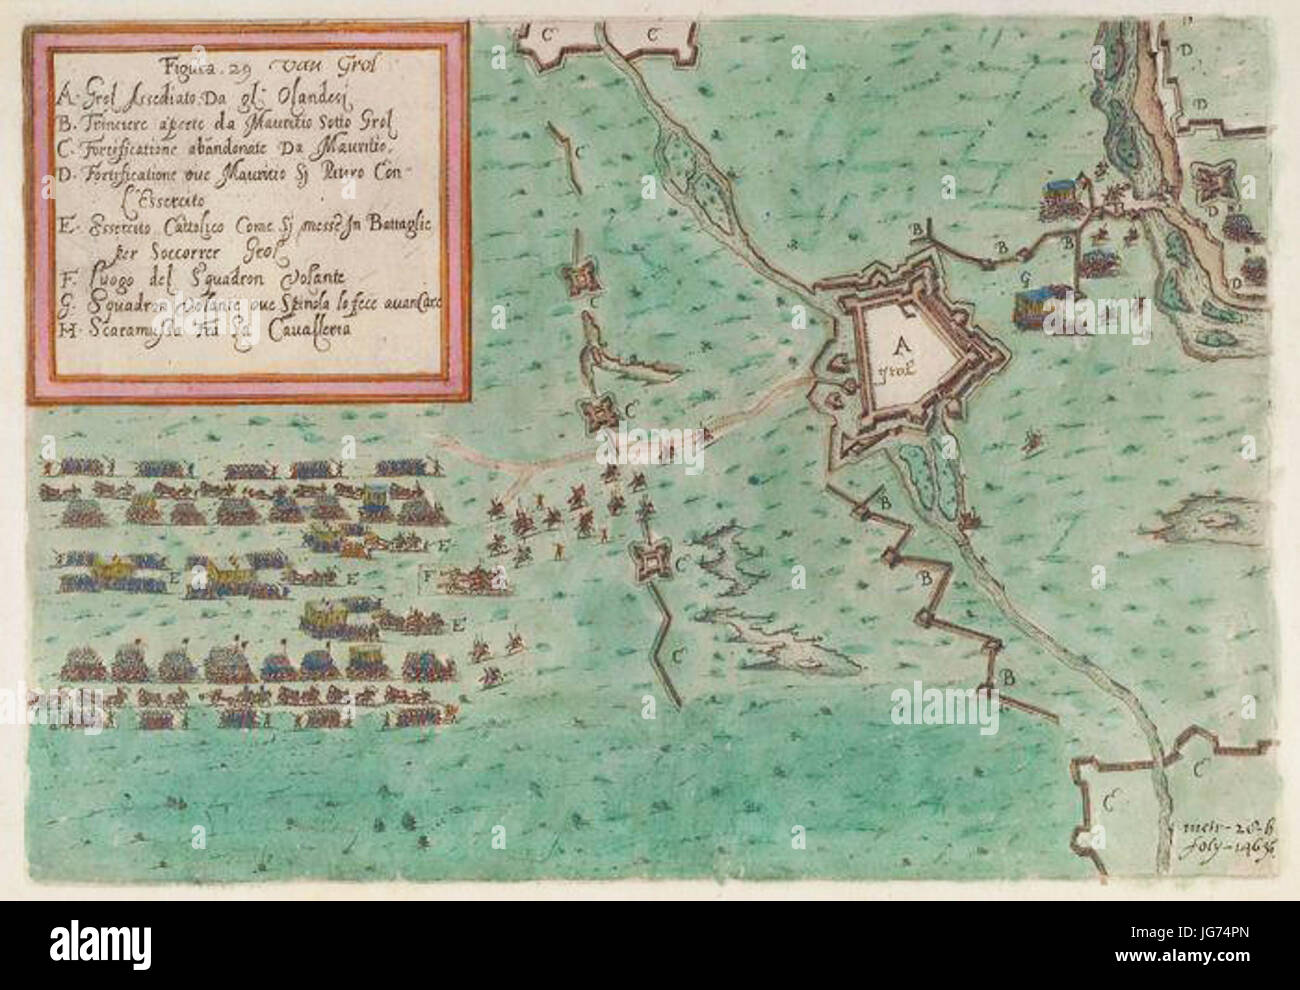 Figura. 29 van Grol
A. Grol Assediato. Da gl: Olandesi
B. Trinciere aperte da Mauritio sotto Grol
C. Fortificatione abandonate Da Mauritio.
D. Fortificatione oue Mauritio Si Retiro Con
L'Essercito
E. Essercito Cattolico Come Si messe In Battaglie
per Soccorrer Grol
F. Luogo del Squadron Volante
G. Squadron Volante oue Spinola lo fece auancare
H. Scaramusia tra la Cavalleria
C C
D
D
C
B B B
D
D
G
C
A
grol
C
B
E
C
E E F
B
E
C
B
C
C
alamy
alamy
Image ID: JG74PN
www.alamy.com